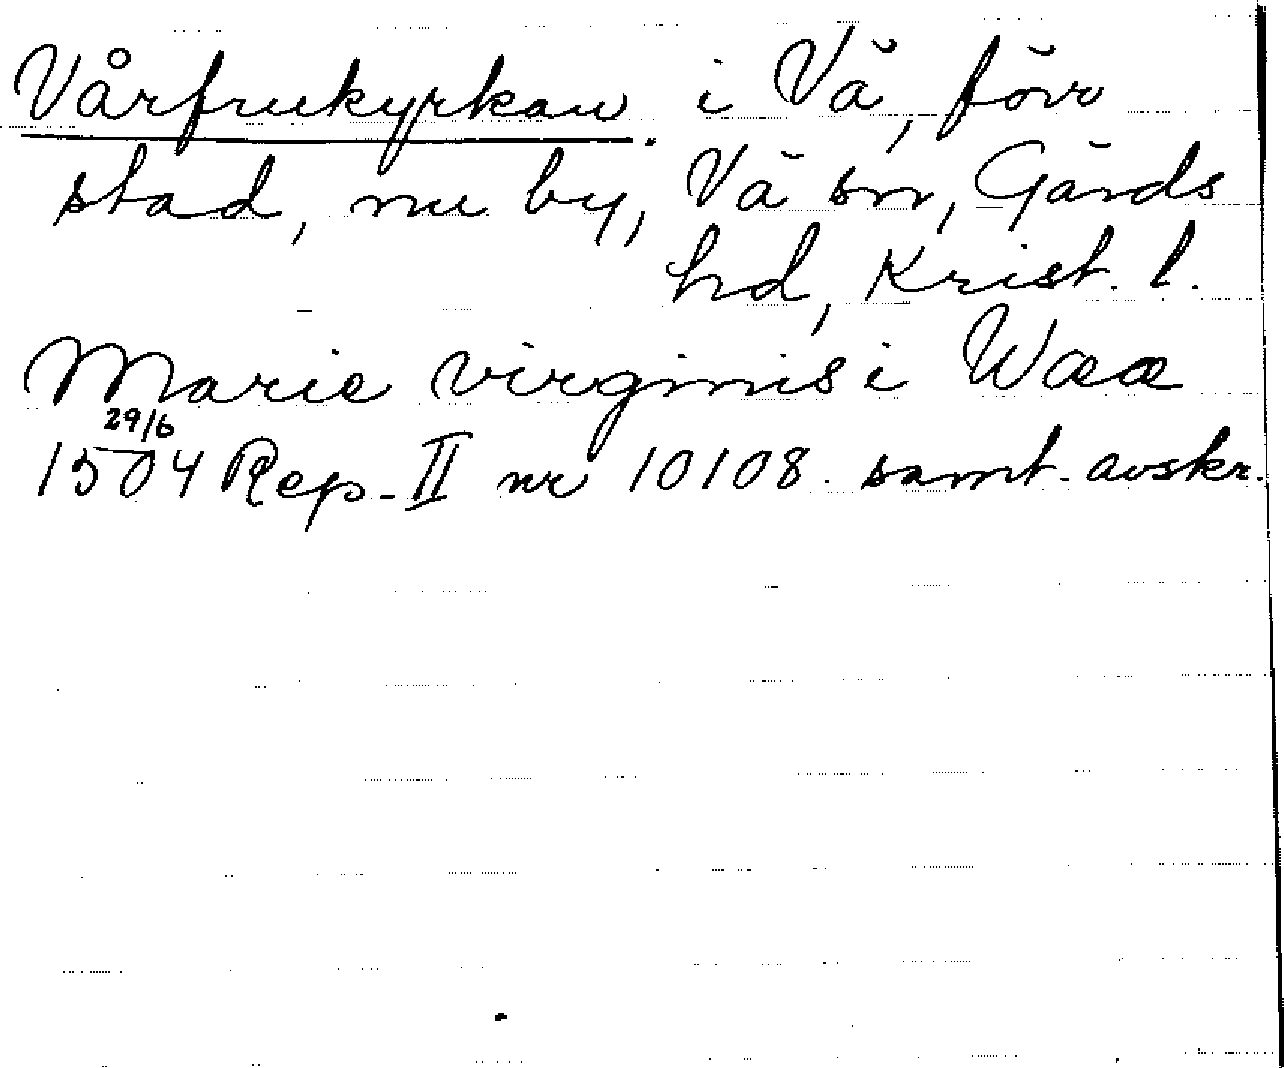 Vårfrukyrkan. i Vä, förr
stad, nu by, Vä sn, Gärds
hd, Krist. l.
Marie virginis i Wææ
29/6
1504 Rep. II nr 10108. samt. avskr.